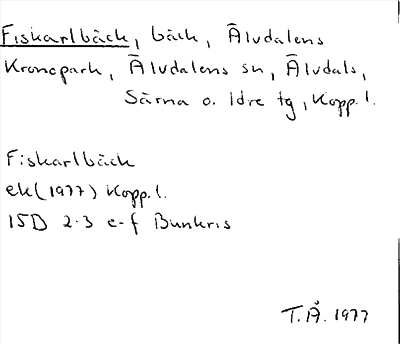 Fiskarlbäck, bäck, Älvdalens
Kronopark, Älvdalens sn, Älvdals,
Särna o. Idre tg, Kopp. l.
Fiskarlbäck
ek (1977) Kopp. l.
15D 2-3 e-f Bunkris
T.Å. 1977